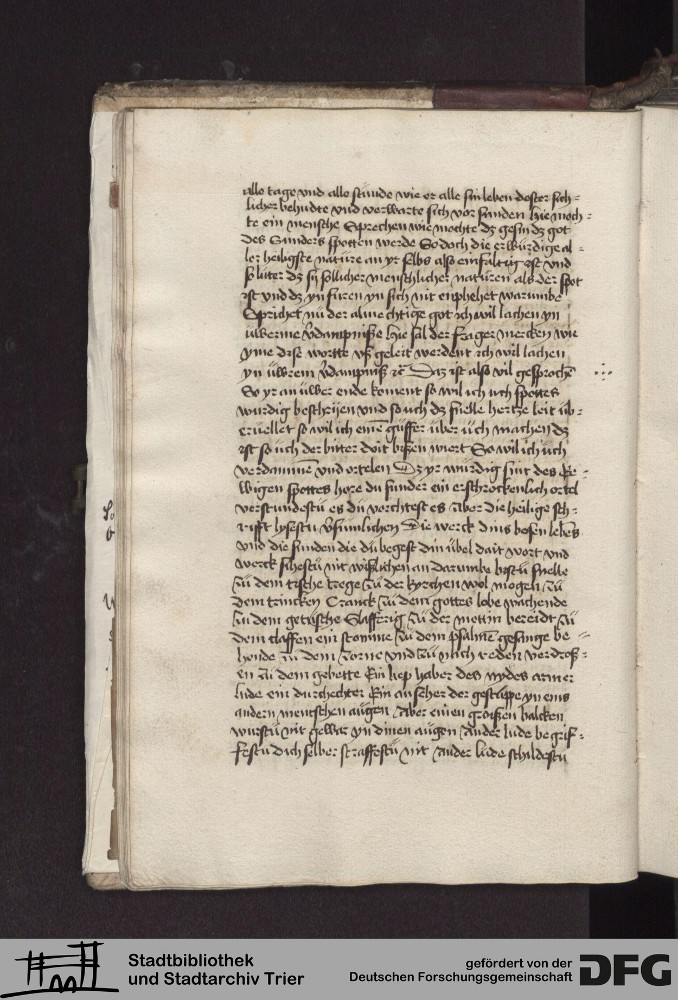 alle tage vnd alle stunde wie er alle sin leben dester sich=
licher behudte vnd verwarte sich vor sunden hie moch=
te ein mensche Sprechen wie mochte dz gesin dz got
des Sunders spotten werde So doch die erwurdige al=
ler heiligste nature an yr selbs also einfaltig ist vnd
so luter dz sy sollicher menschlicher naturen als der spot
ist vnd dz yn furen yn sich nit enphehet warumbe
Sprichet nu der almechtige got ich wil lachen yn
uwerme vdampnisse Hie sal der frager mercken wie
yme dise wortte vß geleit werdent ich wil lachen
yn uwrem vdampniß Daz ist also vil gesproche
So yr an uwer ende koment so wil ich uch spottes
wurdig beschrijen vnd so uch dz snelle hertze leit üb=
eruellet so wil ich eine guffer uber uch machen dz
ist so uch der bitter doit wiert So wil ich uch
verdammen vnd ortelen Dz yr wurdig sint des Ee=
wigen spottes hore du sunder ein erschrockenlich ortel
verstundestu es du vorchtest es Aber die heilige sch=
rifft lysestu vsumlichen Die werck dins bosen lebens
vnd die sunden die du begest din ubel dait wort vnd
werck sihestu nit wißlichen an darumbe bistu snelle
zu dem tische trege zu der kyrchen wol mogen zu
dem trincken Cranck zu dem gottes lobe wachende
zu dem getusche Slafferig zu der mettin bereidt zu
dem claffen ein stomme zu dem psalmen gesange be=
hende zu dem zorne vnd zu mich reden verdroß=
en zu dem gebette Ein liep haber des nydes armer
lude ein durchechter Ein ansehér der gestuppe yn eins
andern menschen augen Aber einen groißen balcken
wurstu nit gewar yn dinen augen Ander lude begrif=
festu dich selber straffestu nit Ander lude schildestu
Stadtbibliothek
und Stadtarchiv Trier
gefördert von der
Deutschen Forschungsgemeinschaft
DFG